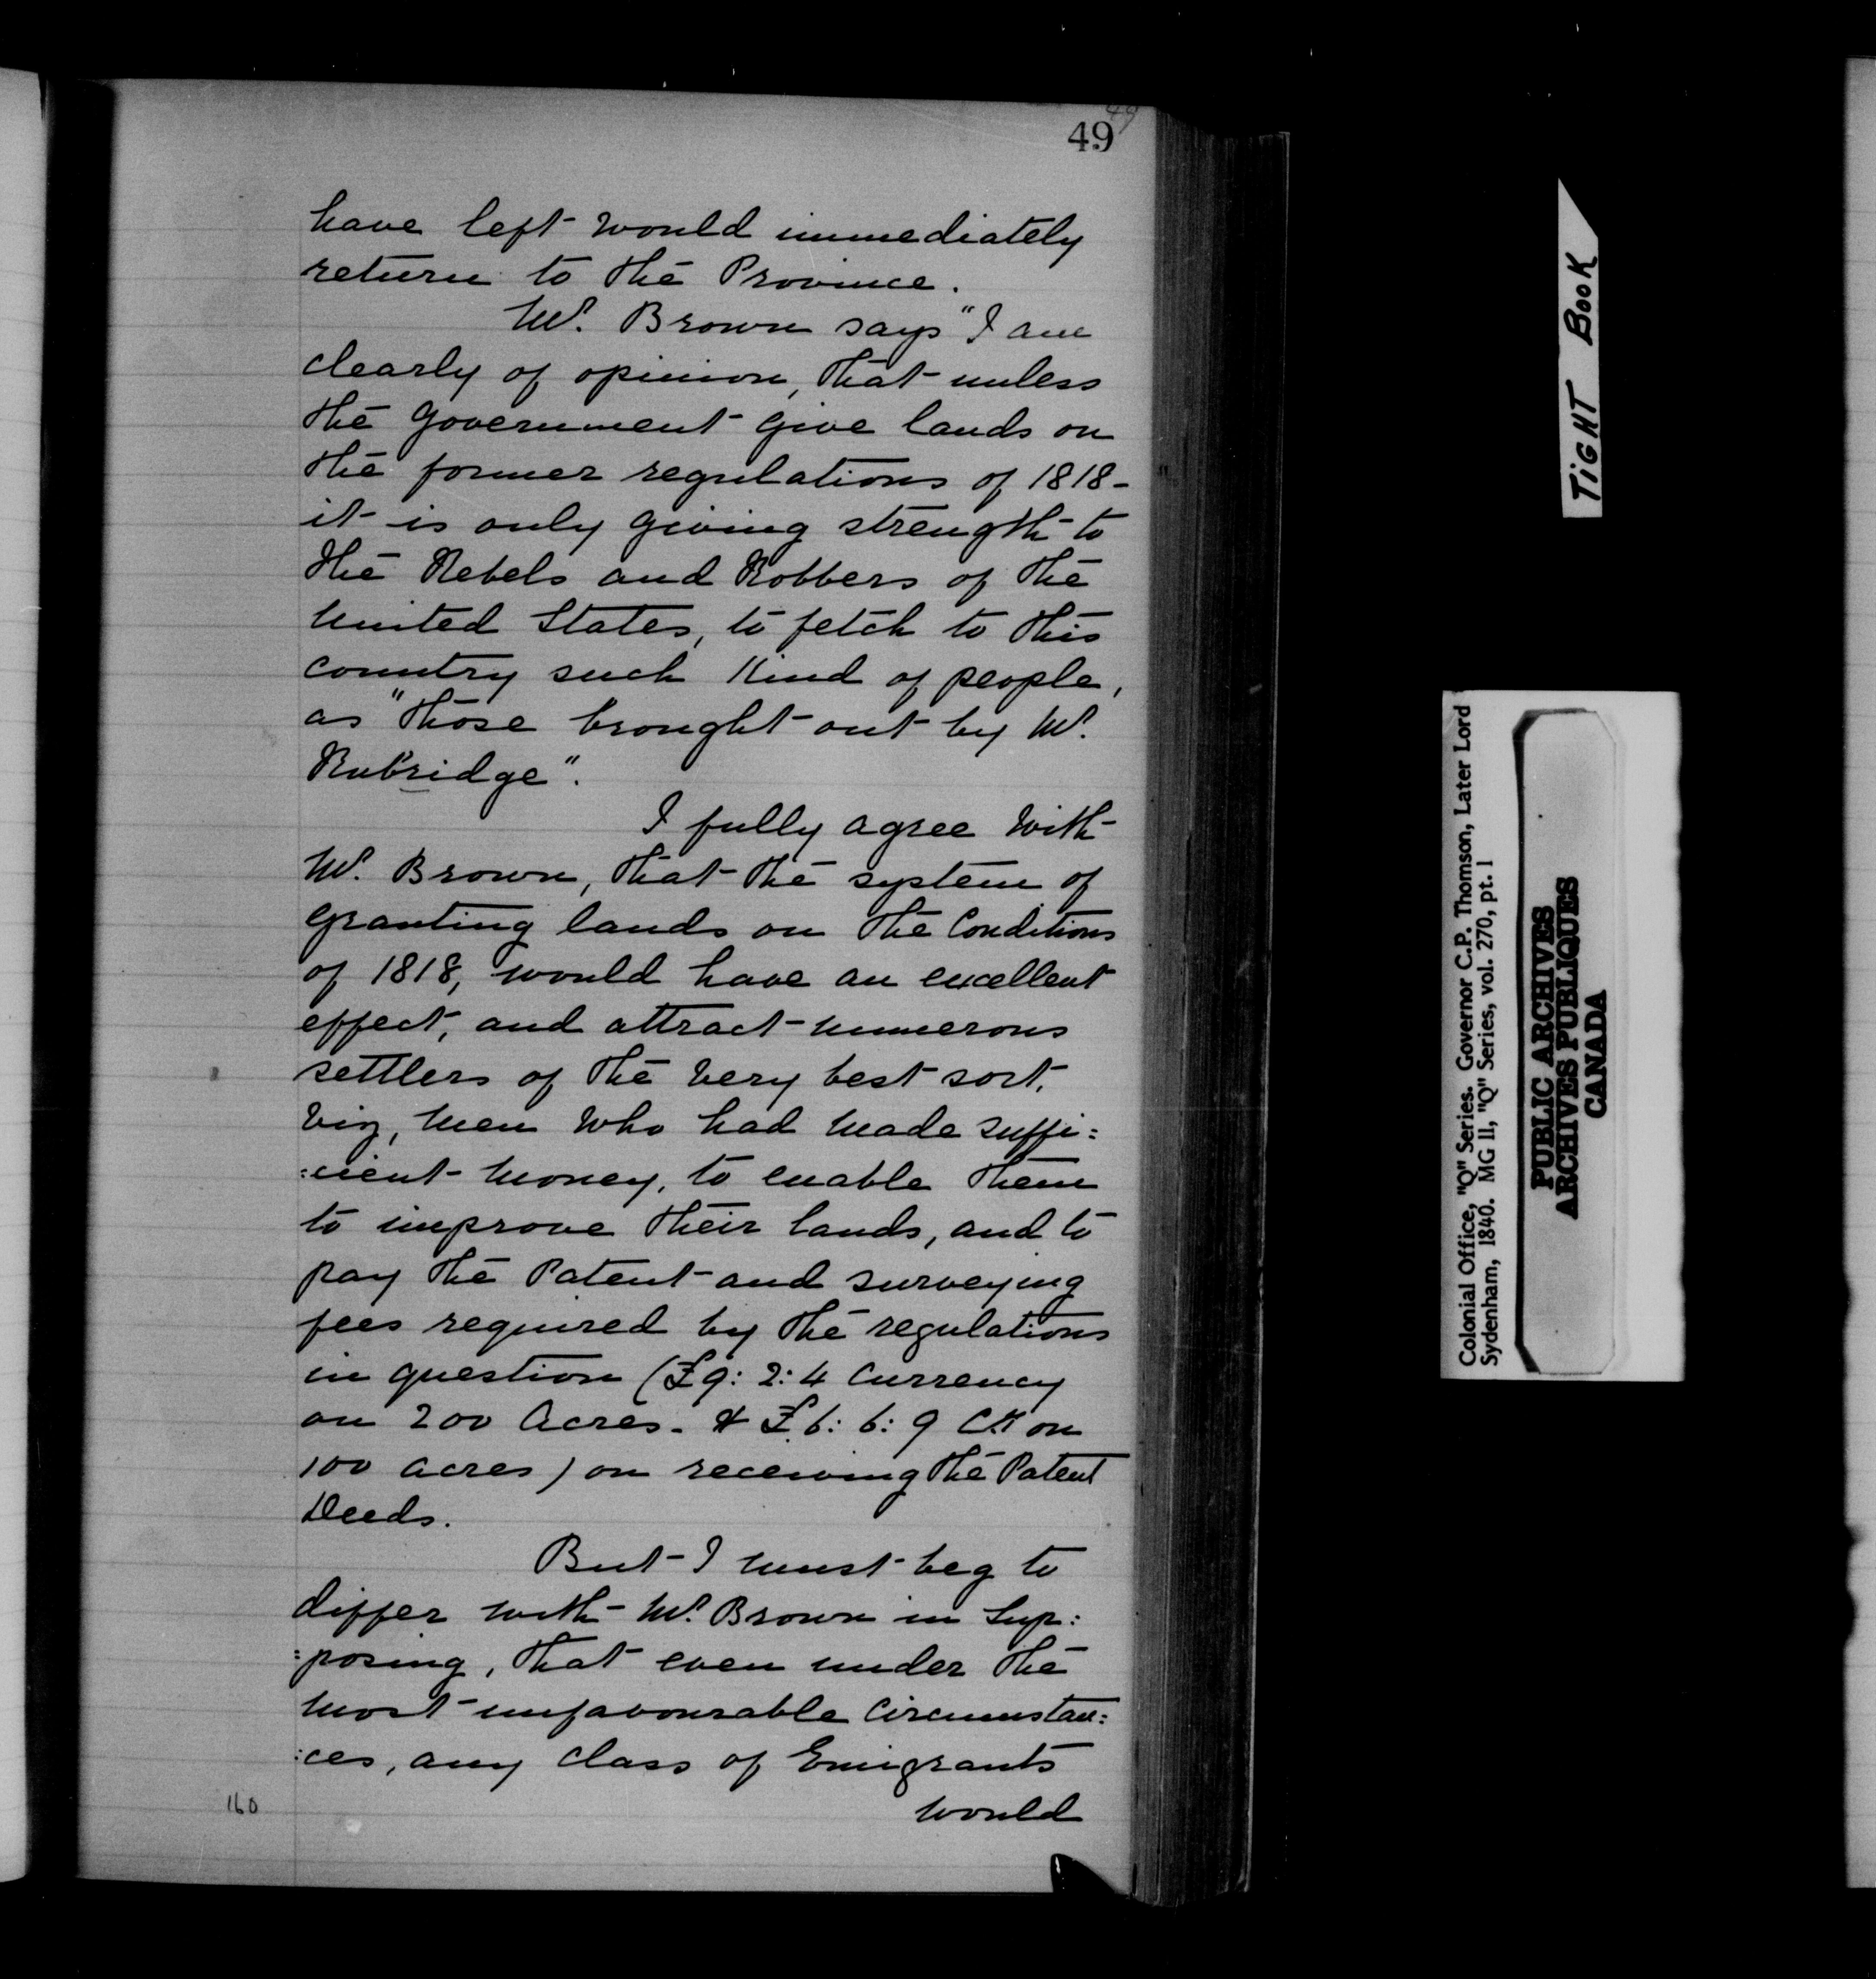 49
49
have left would immediately
return to the Province.
Mr. Brown says "I am
clearly of opinion, that unless
the Government give lands on
the former regulations of 1818-
it is only giving strength to
the Rebels and Robbers of the
United States, to fetch to this
country such Kind of people,
as "those brought out by Mr.
Rubridge".
I fully agree with
Mr. Brown, that the system of
granting lands on the Conditions
of 1818, would have an excellent
effect, and attract numerous
settlers of the very best sort,
viz, men who had made suffi:
:cient money, to enable them
to improve their lands, and to
pay the Patent and surveying
fees required by the regulations
in question (£9:2:4 Currency
on 200 Acres. & £6:6:9 Cy on
100 acres) on receiving the Patent
Deeds.
But I must beg to
differ with Mr. Brown in Sup:
:posing, that even under the
most unfavourable Circumstan:
:ces, any Class of Emigrants
would
160
TIGHT BOOK
Colonial Office, "Q" Series. Governor C.P. Thomson, Later Lord
Sydenham, 1840. MG 11, "Q" Series, vol. 270, pt. 1
PUBLIC ARCHIVES
ARCHIVES PUBLIQUES
CANADA